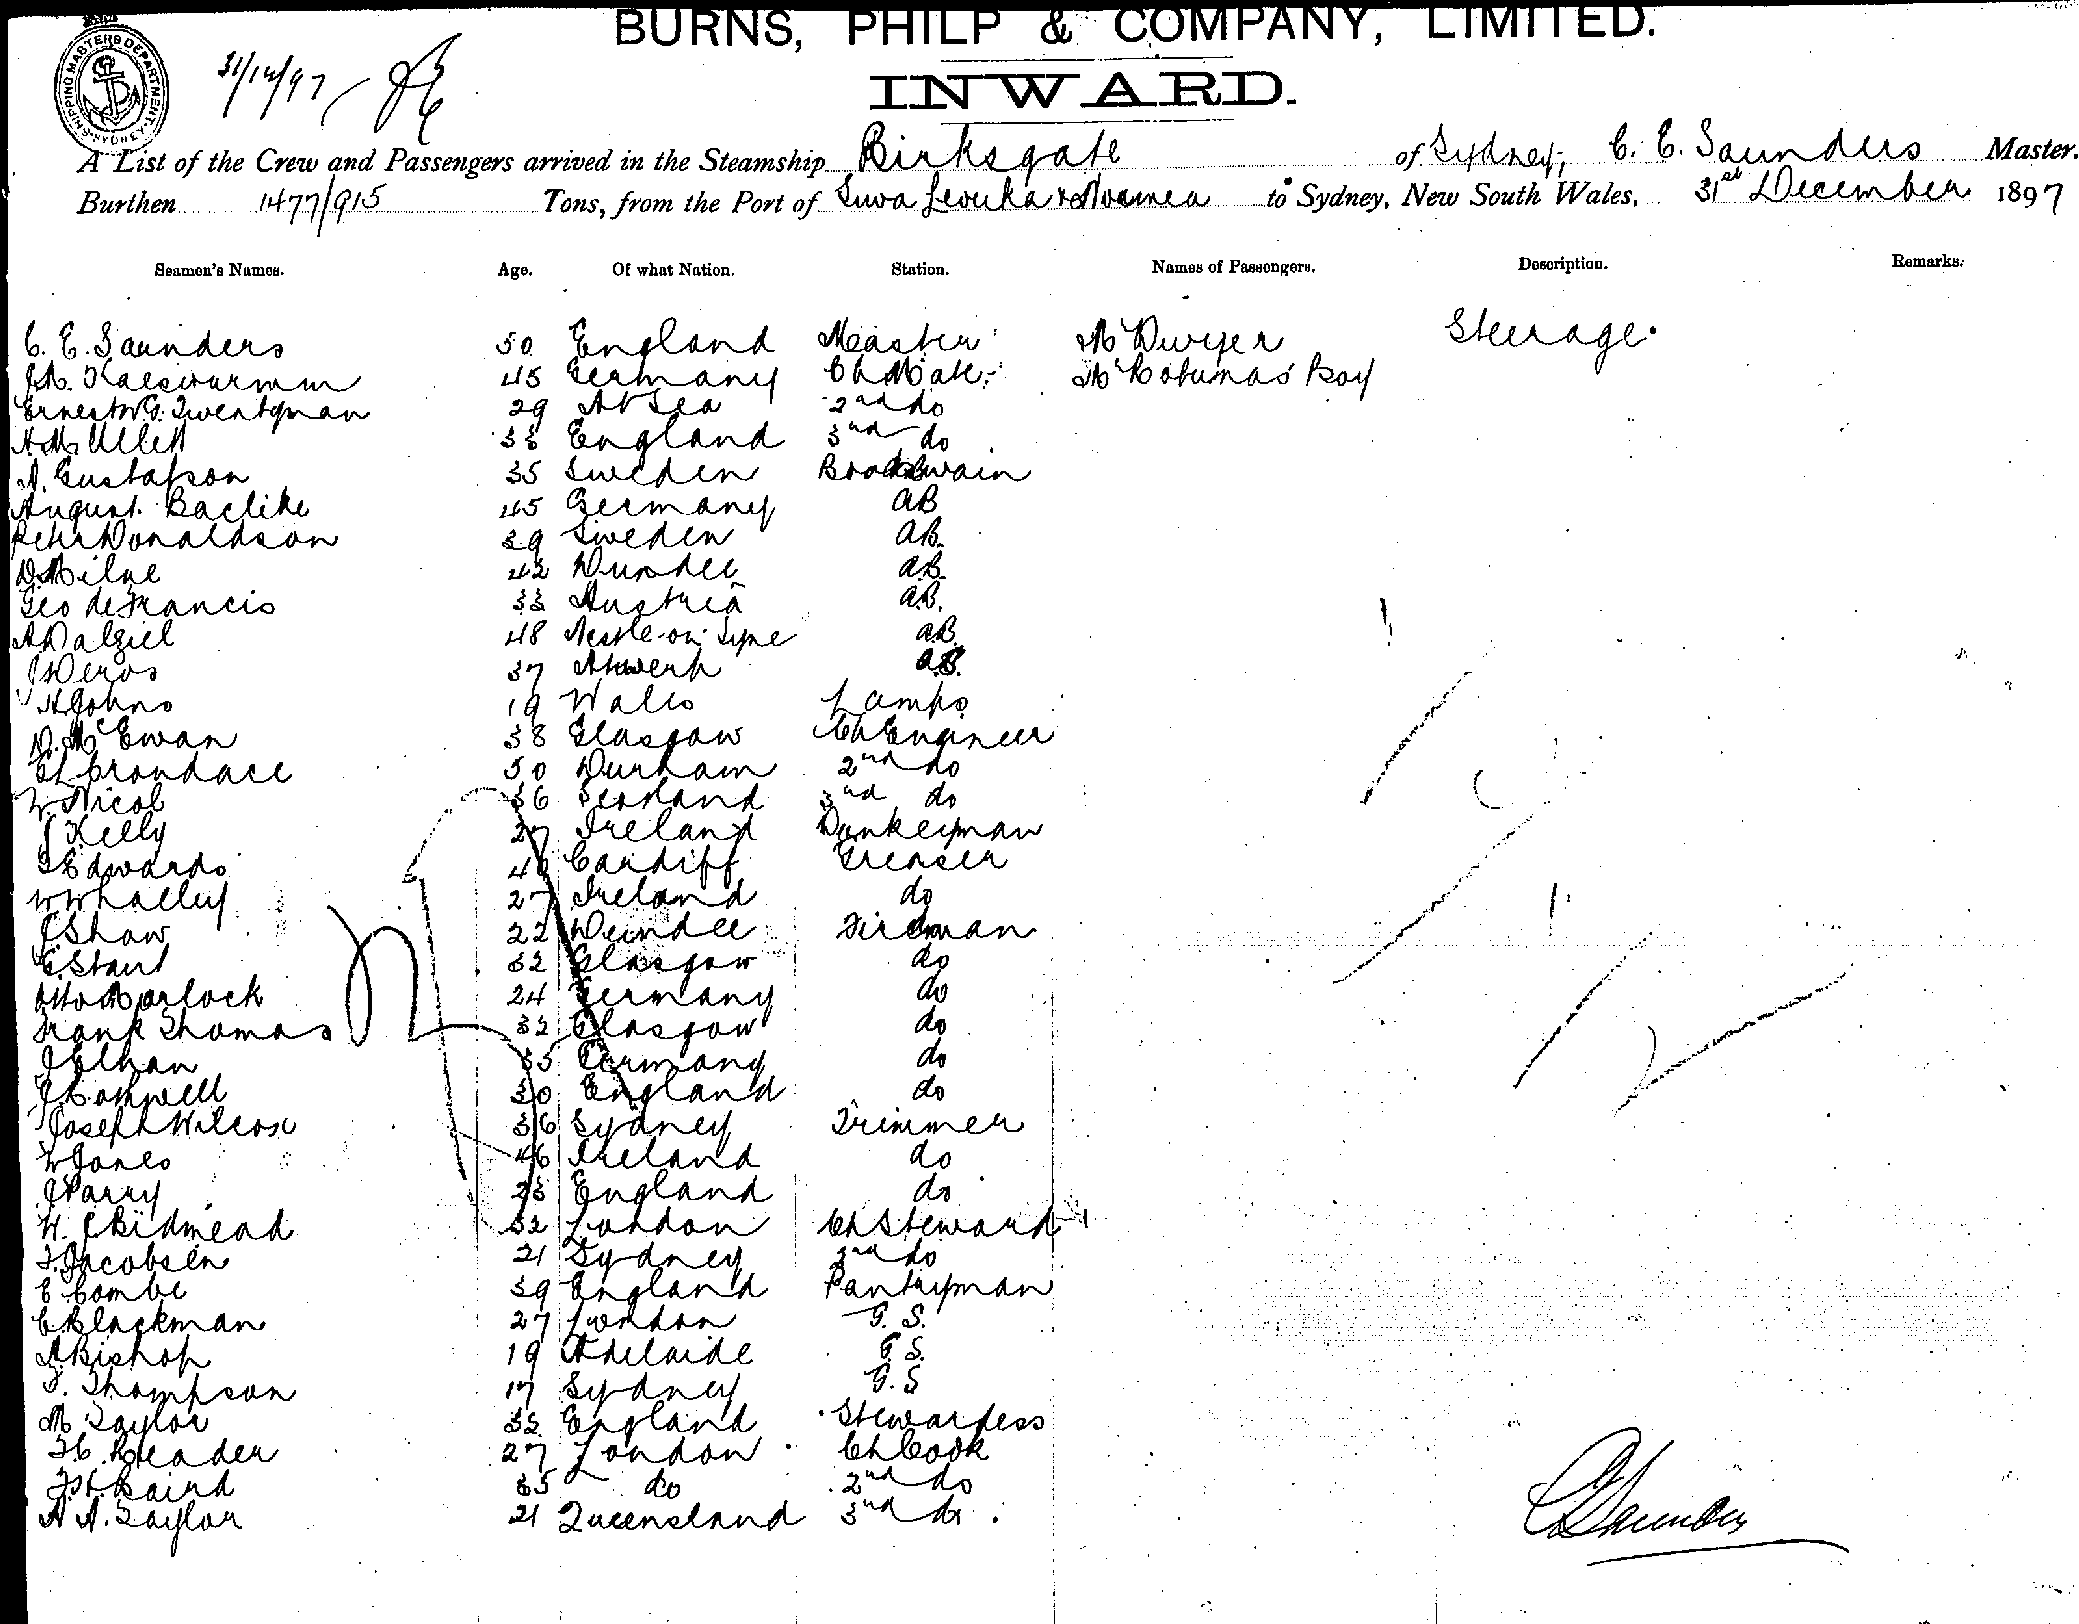 BURNS, PHILP & COMPANY, LIMITED.
INWARD.
SHIPPING MASTERS DEPARTMENT SYDNEY
31/12/97
A List of the Crew and Passengers arrived in the Steamship Birksgate of Sydney, C. E. Saunders Master.
Burthen 1477/915 Tons, from the Port of Suva Levuka & Noumea to Sydney, New South Wales, 31st December 1897
Seamen's Names. Age. Of what Nation. Station. Names of Passengers. Description. Remarks.
C. E. Saunders 50 England Master Mr Dwyer Steerage.
Kaeswurmm 45 Germany Ch Mate Boy
Ernest Twentyman 29 At Sea 2nd do
Ullett England 3rd do
A. Gustafson 35 Sweden Boatswain
August Baelike 45 Germany AB
Peter Donaldson 39 Sweden AB.
D Milne 42 Dundee AB.
Geo de Francis 33 Austria AB.
A Dalziel 48 AB.
J Deros 37 Antwerp AB.
H Johns 19 Wales Lamps
D. McEwan 38 Glasgow Ch Engineer
Crondace 50 Durham 2nd do
W Nicol 36 Scotland 3rd do
J Kelly 27 Ireland Donkeyman
Edwards Cardiff Greaser
W Whalley 27 Ireland do
J Shaw 22 Dundee Fireman
32 Glasgow do
Otto 24 Germany do
Frank Thomas 32 Glasgow do
35 Germany do
30 England do
Joseph Wilcox 36 Sydney Trimmer
W Jones 46 Ireland do
J Parry 23 England do
W. J Bidmead 32 London Ch Steward
Jacobsen 21 Sydney 2nd do
C Combe 39 England Pantryman
C Blackman 27 London G. S.
A Bishop 19 Adelaide G. S.
T. Thompson 17 Sydney G. S
M Taylor England Stewardess
Reader 27 London Ch Cook
Baird 35 do 2nd do
A. Taylor 21 Queensland 3rd do
C E Saunders